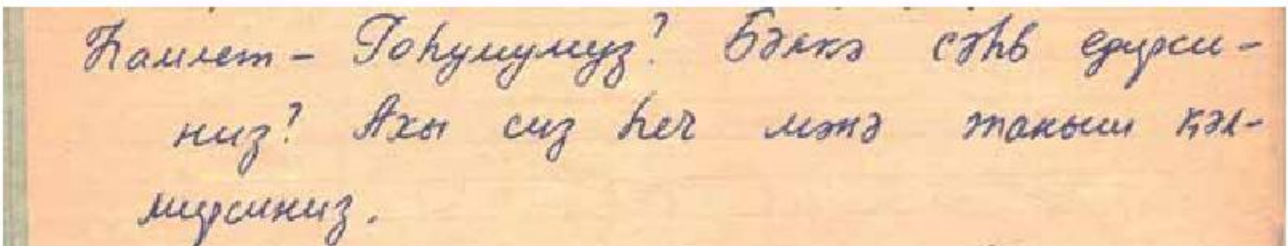 Һамлет – Гоһумумуз? Бәлкә сәһв едирси-
низ? Ахы сиз һеч мәнә таныш ҝәл-
мирсиниз.